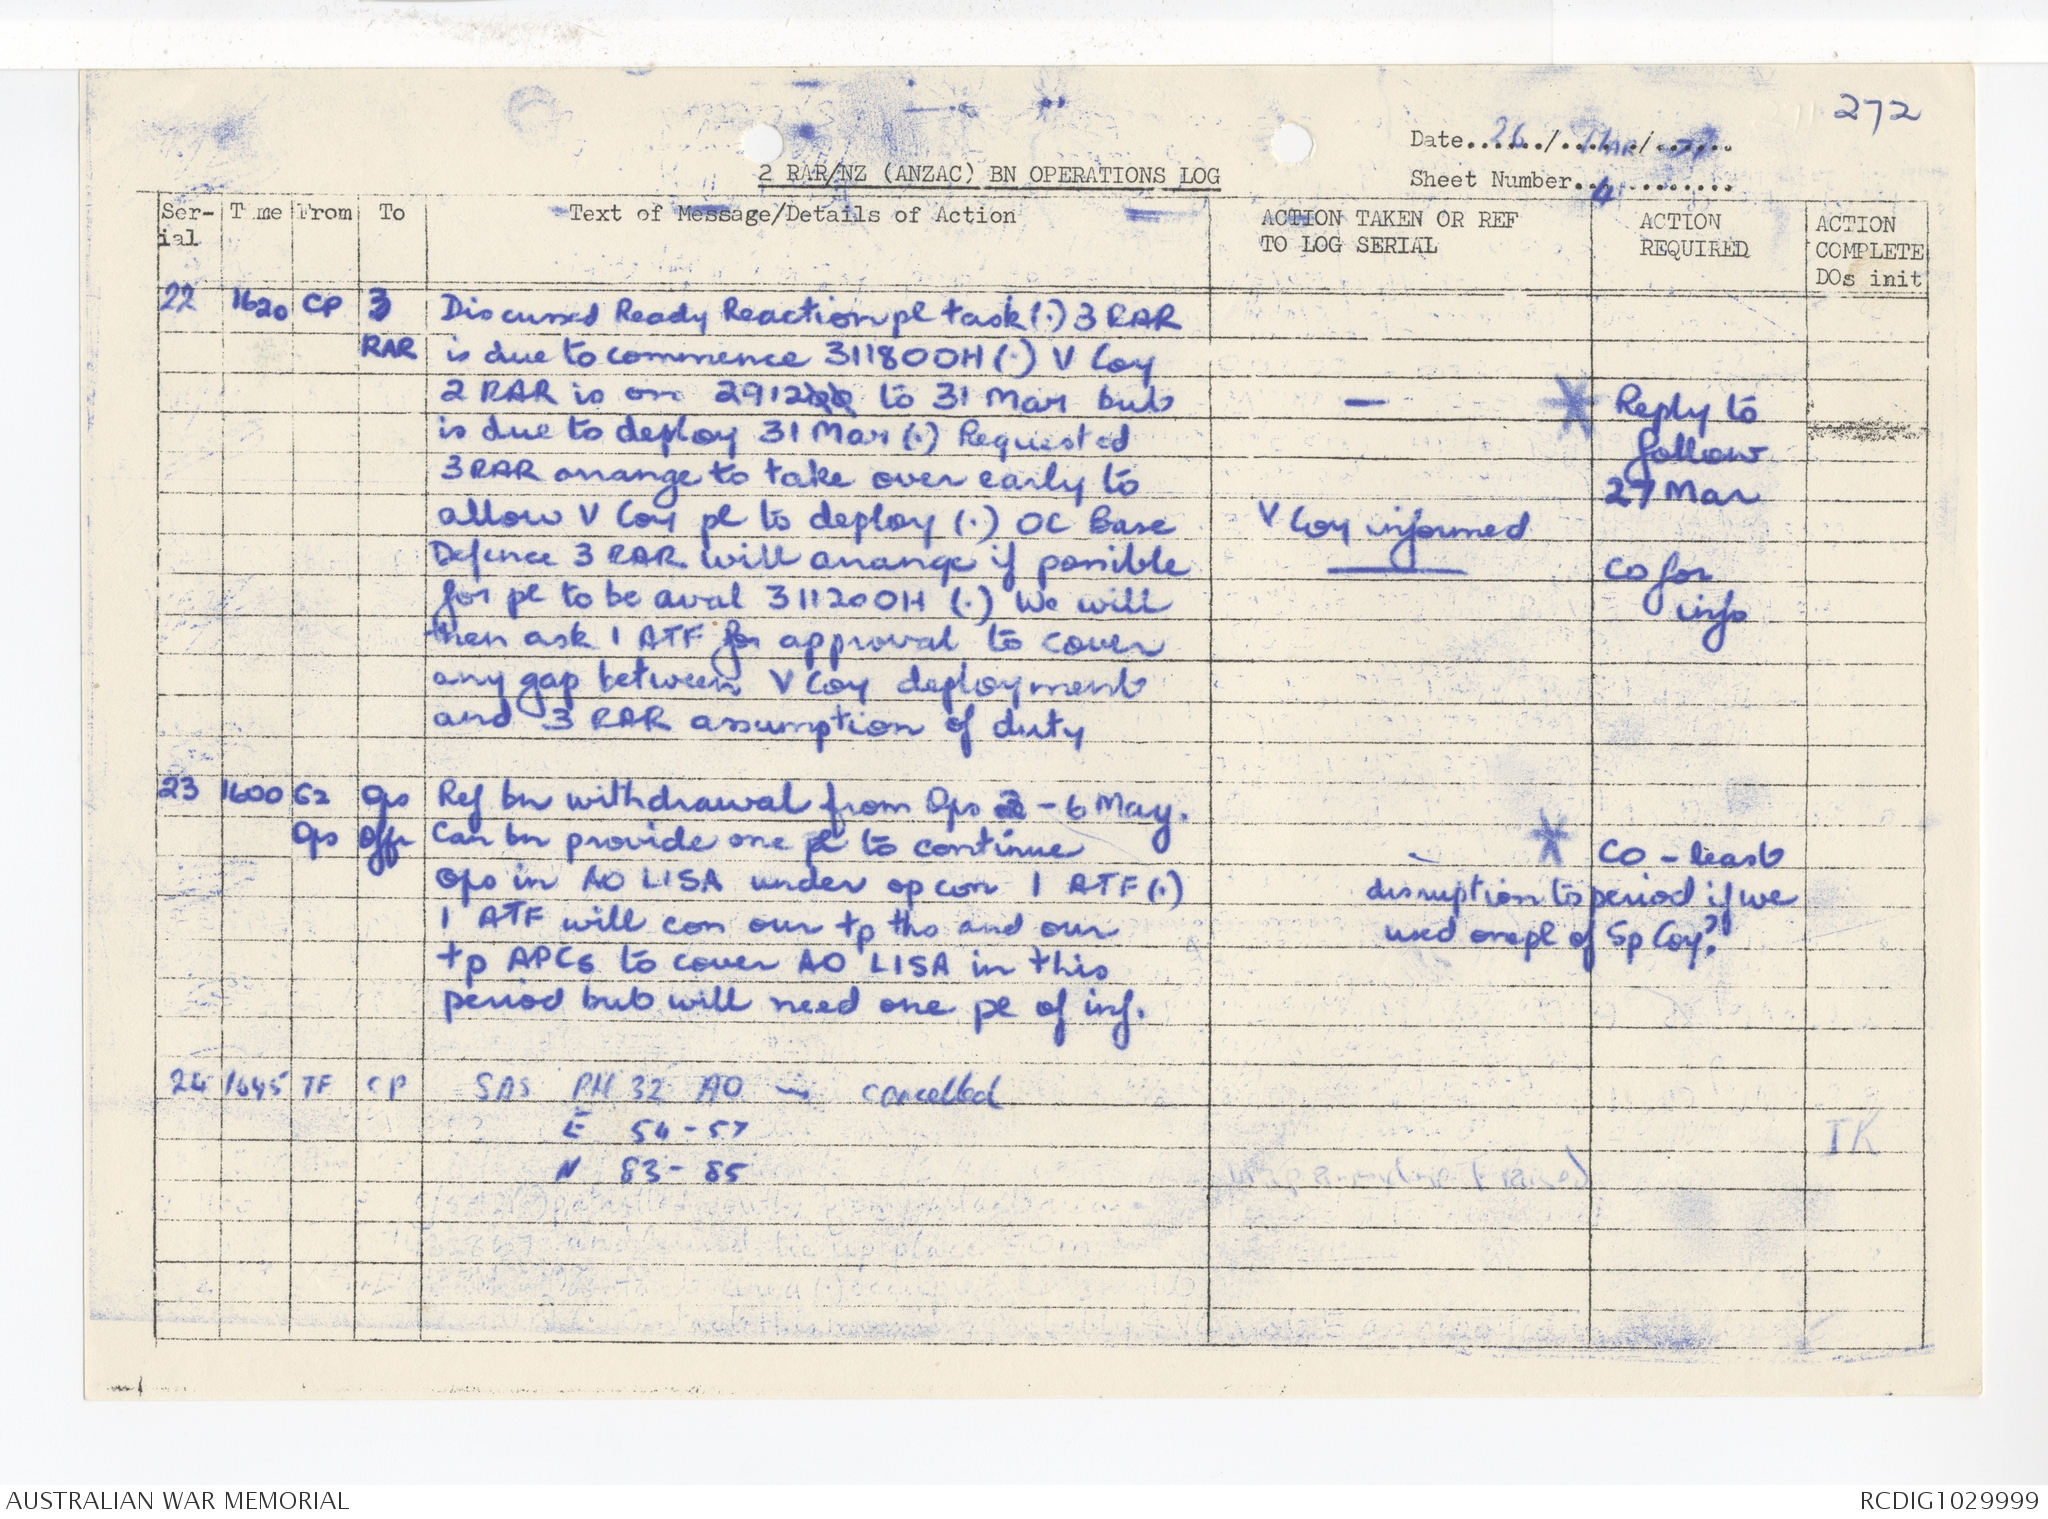 272
Date 26 / MAR / 71
2 RAR/NZ (ANZAC) BN OPERATIONS LOG
Sheet Number 4
Ser-ial Time From To Text of Message/Details of Action ACTION TAKEN OR REF TO LOG SERIAL ACTION REQUIRED ACTION COMPLETE DOs init
22 1620 CP 3 Discussed Ready Reaction pl task (.) 3 RAR
RAR is due to commence 311800H (.) V Coy
2 RAR is on 2912 to 31 Mar but — Reply to
is due to deploy 31 Mar (.) Requested follow
3 RAR arrange to take over early to 27 Mar
allow V Coy pl to deploy (.) OC Base V Coy informed
Defence 3 RAR will arrange if possible CO for
for pl to be aval 311200H (.) We will info
then ask 1 ATF for approval to cover
any gap between V Coy deployment
and 3 RAR assumption of duty
23 1600 G2 Ops Ref bn withdrawal from Ops 2 - 6 May.
Ops Offr Can bn provide one pl to continue CO - least
Ops in AO LISA under op con 1 ATF (.) disruption to period if we
1 ATF will con our tp tks and our used one pl of Sp Coy?
tp APCs to cover AO LISA in this
period but will need one pl of inf.
24 1645 TF CP SAS PH 32 AO cancelled
E 54 - 57 IK
N 83 - 85
AUSTRALIAN WAR MEMORIAL
RCDIG1029999